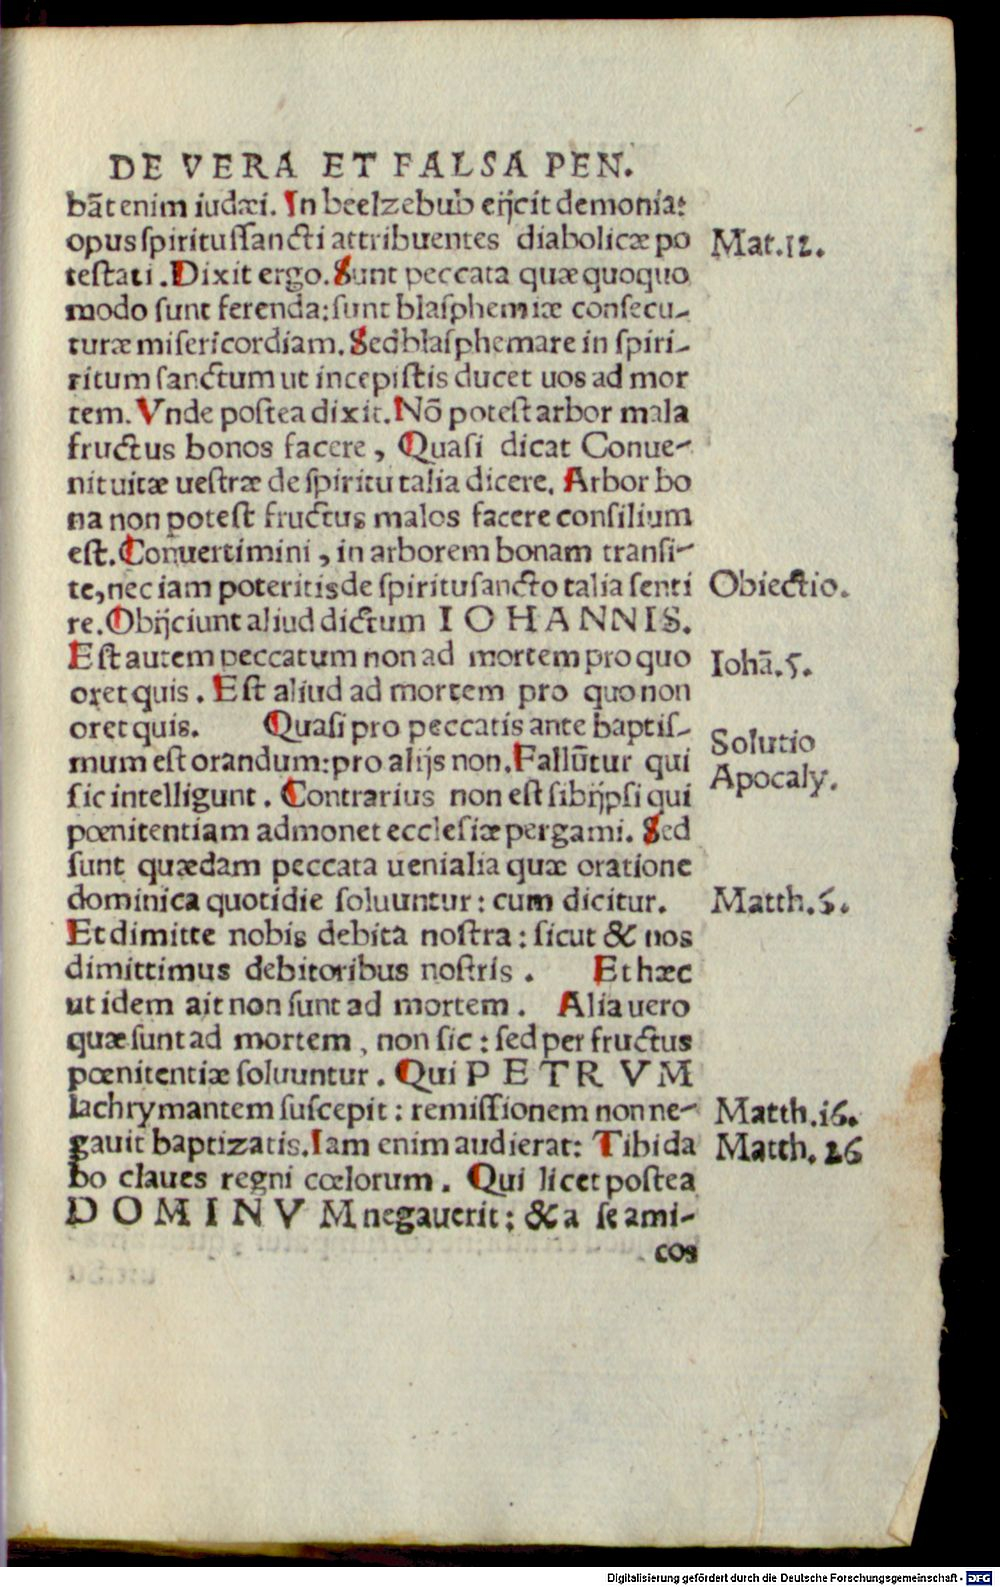 DE VERA ET FALSA PEN.
bāt enim iudæi. In beelzebub eijcit demonia:
opus spiritussancti attribuentes diabolicæ po
testati. Dixit ergo. Sunt peccata quæ quoquo
modo sunt ferenda: sunt blasphemiæ consecu-
turæ misericordiam. Sed blasphemare in spiri-
ritum sanctum ut incepistis ducet uos ad mor
tem. Vnde postea dixit. Nō potest arbor mala
fructus bonos facere, Quasi dicat Conue-
nit uitæ uestræ de spiritu talia dicere. Arbor bo
na non potest fructus malos facere consilium
est. Conuertimini, in arborem bonam transi-
te, nec iam poteritis de spiritusancto talia senti
re. Obijciunt aliud dictum IOHANNIS.
Est autem peccatum non ad mortem pro quo
oret quis. Est aliud ad mortem pro quo non
oret quis. Quasi pro peccatis ante baptis-
mum est orandum: pro alijs non. Fallūtur qui
sic intelligunt. Contrarius non est sibijpsi qui
pœnitentiam admonet ecclesiæ pergami. Sed
sunt quædam peccata uenialia quæ oratione
dominica quotidie soluuntur: cum dicitur.
Et dimitte nobis debita nostra: sicut & nos
dimittimus debitoribus nostris. Et hæc
ut idem ait non sunt ad mortem. Alia uero
quæ sunt ad mortem, non sic: sed per fructus
pœnitentiæ soluuntur. Qui PETRVM
lachrymantem suscepit: remissionem non ne-
gauit baptizatis. Iam enim audierat: Tibi da
bo claues regni cœlorum. Qui licet postea
DOMINVM negauerit: & a se ami-
cos
Mat.12.
Obiectio.
Iohā.5.
Solutio
Apocaly.
Matth.6.
Matth.16.
Matth. 26
Digitalisierung gefördert durch die Deutsche Forschungsgemeinschaft - DFG